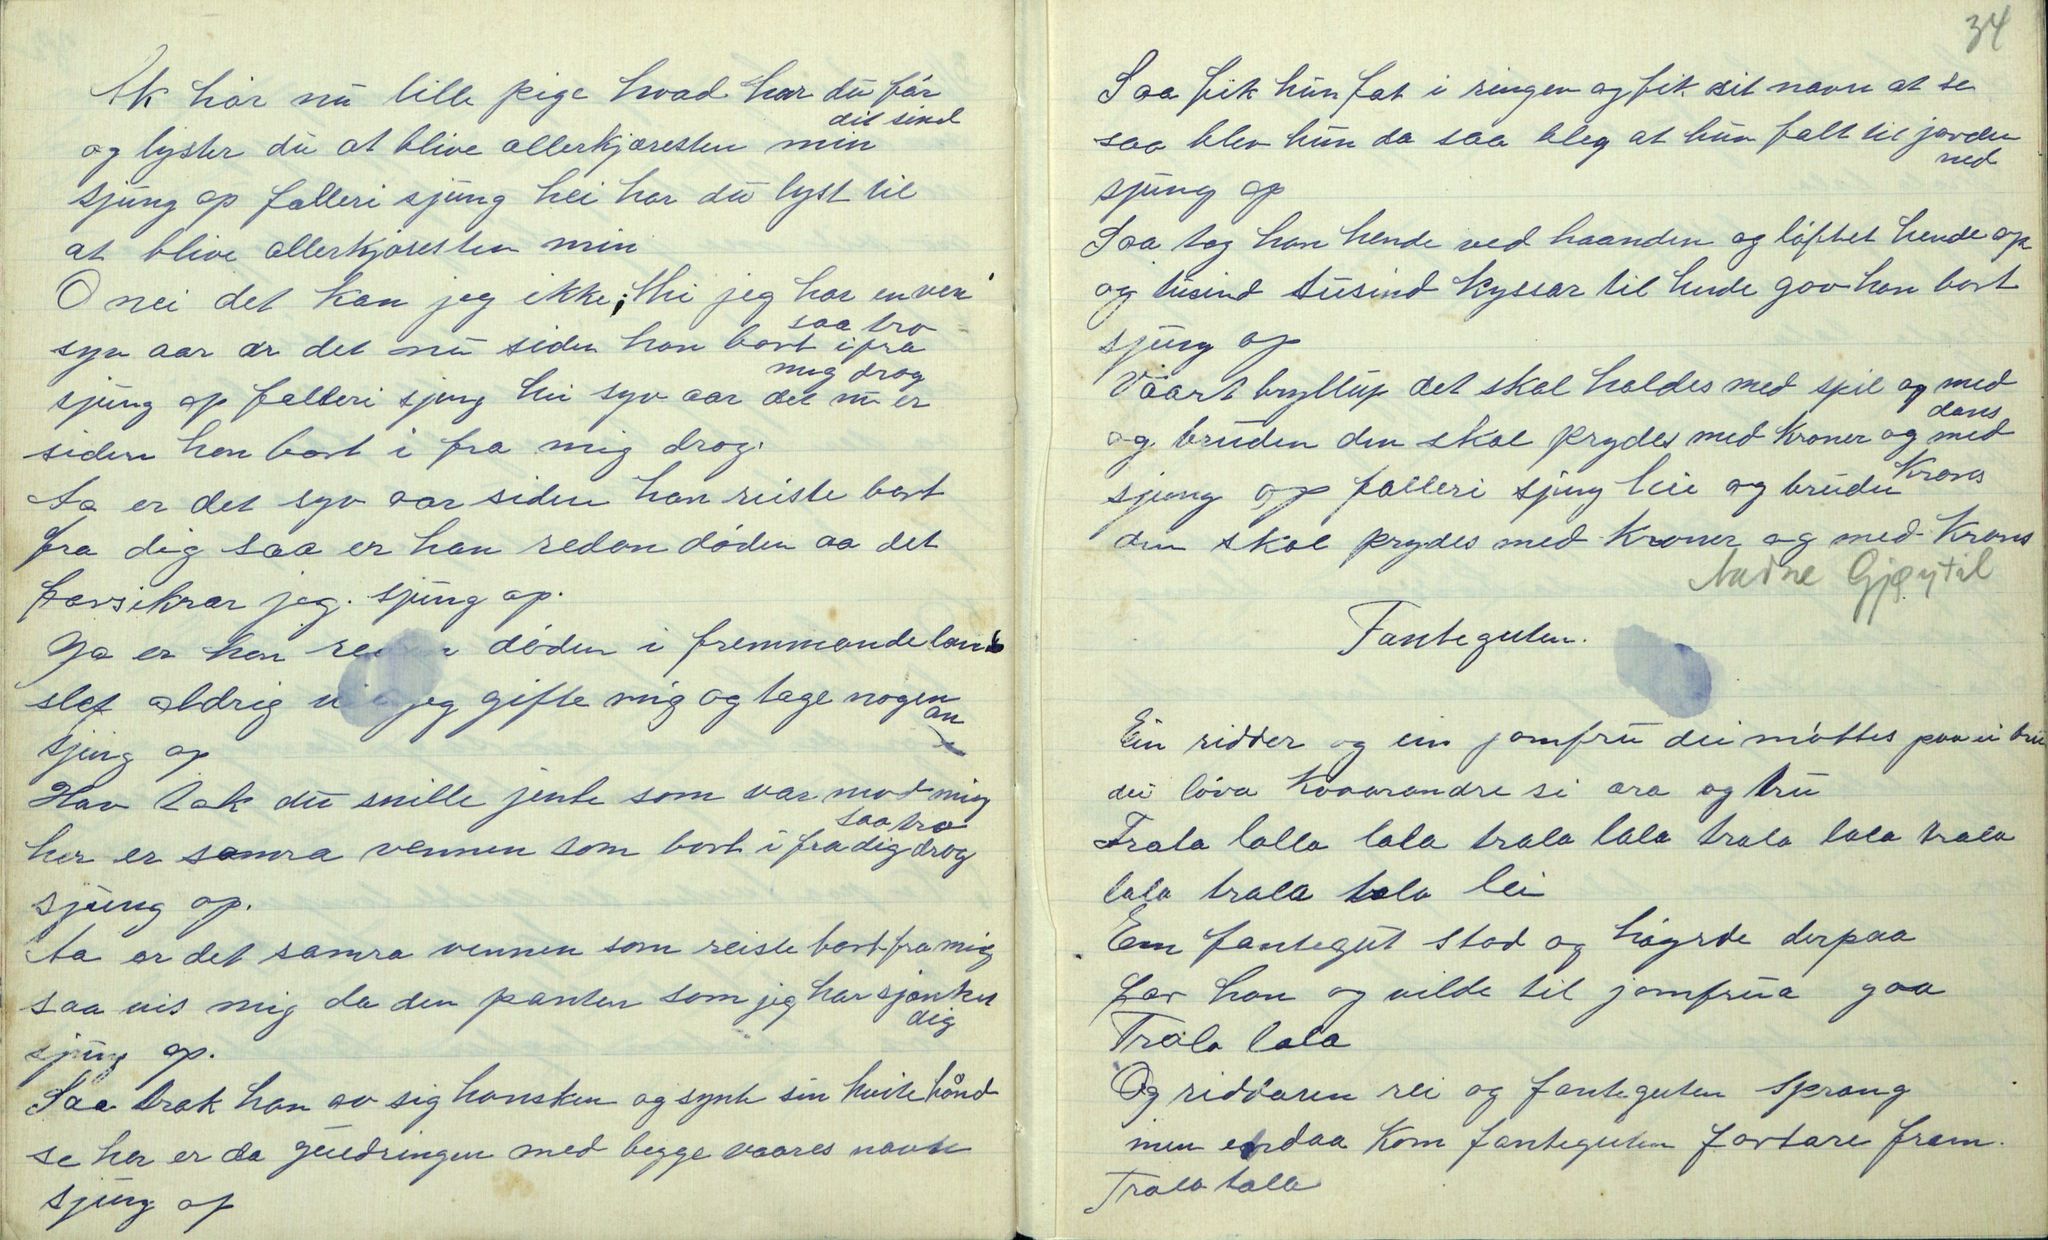 Ak hør nu lille pige hvad har du før
dit sind
og lyster du at blive allerkjæresten min
sjung op falleri sjung hei har du lyst til
at blive allerkjæresten min
O nei det kan jeg ikke, thi jeg har en ven
saa tro
syv aar ær det nu siden han bort ifra
mig drog
sjung op falleri sjung hei syv aar det nu er
siden han bort i fra mig drog.
Aa er det syv aar siden han reiste bort
fra dig saa er han redan døden aa det
forsikrar jeg. sjung op.
Ja er han døden i fremmande land
slet aldrig jeg gifte mig og tage nogen
an
sjung op
Hav tak du snille jente som var mod mig
saa tro
her er samra vennen som bort i fra dig drog
sjung op.
Aa ær det samra vennen som reiste bort fra mig
saa vis mig da den panten som jeg har sjænket
dig
sjung op.
Saa trak han av sig hansken og synte sin hvite hånd
se her er da guldringen med begge vaares navn
sjung op
34
Saa fik hun fat i ringen og fik sit navn at se
saa blev hun da saa bleg at hun falt til jorden
ned
sjung op
Saa tog han hende ved haanden og løftet hende op
og tusind tusind kyssar til hende gav han bort
sjung op
Vaart bryllup det skal holdes med spil og med
dans
og bruden den skal prydes med kroner og med
krans
sjung op falleri sjung hei og bruden
den skal prydes med kroner og med krans
Aadne Gjøytil
Fanteguten.
Ein ridder og ein jomfru dei møttes paa ei bru
dei lova kvaarandre si æra og tru
Trala lalla lala trala lala trala lala trala
lala trala lala lei
Ein fantegut stod og høyrde derpaa
før han og vilde til jomfrua gaa
Trala lala
Og riddaren rei og fanteguten sprang
men endaa kom fanteguten fortare fram.
Trala lala